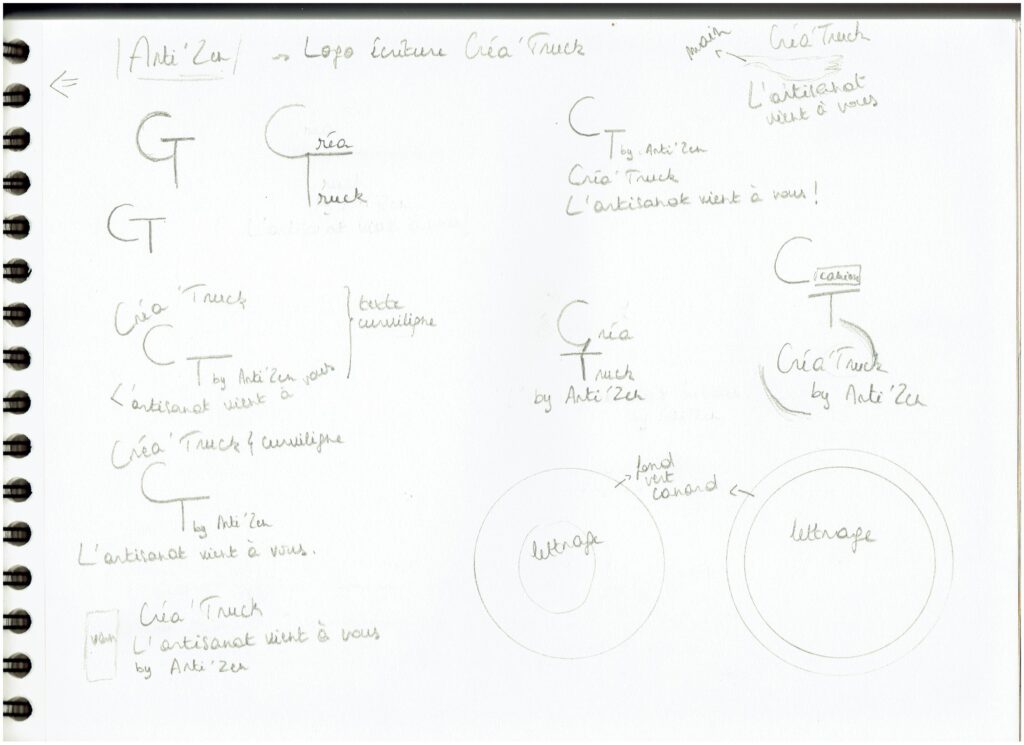 Anti'Zen → Logo écriture Créa'Truck
main
Créa'Truck
L'artisanat
vient à vous
CT
Créa
Truck
CT
by Anti'Zen
Créa'Truck
L'artisanat vient à vous !
CT
Créa'Truck
CT
by Anti'Zen
L'artisanat vient à vous
texte
curviligne
Créa
Truck
by Anti'Zen
C
T
Créa'Truck
by Anti'Zen
Créa'Truck } curviligne
CT
by Anti'Zen
L'artisanat vient à vous.
fond
vert
canard
lettrage
lettrage
Créa'Truck
L'artisanat vient à vous
by Anti'Zen